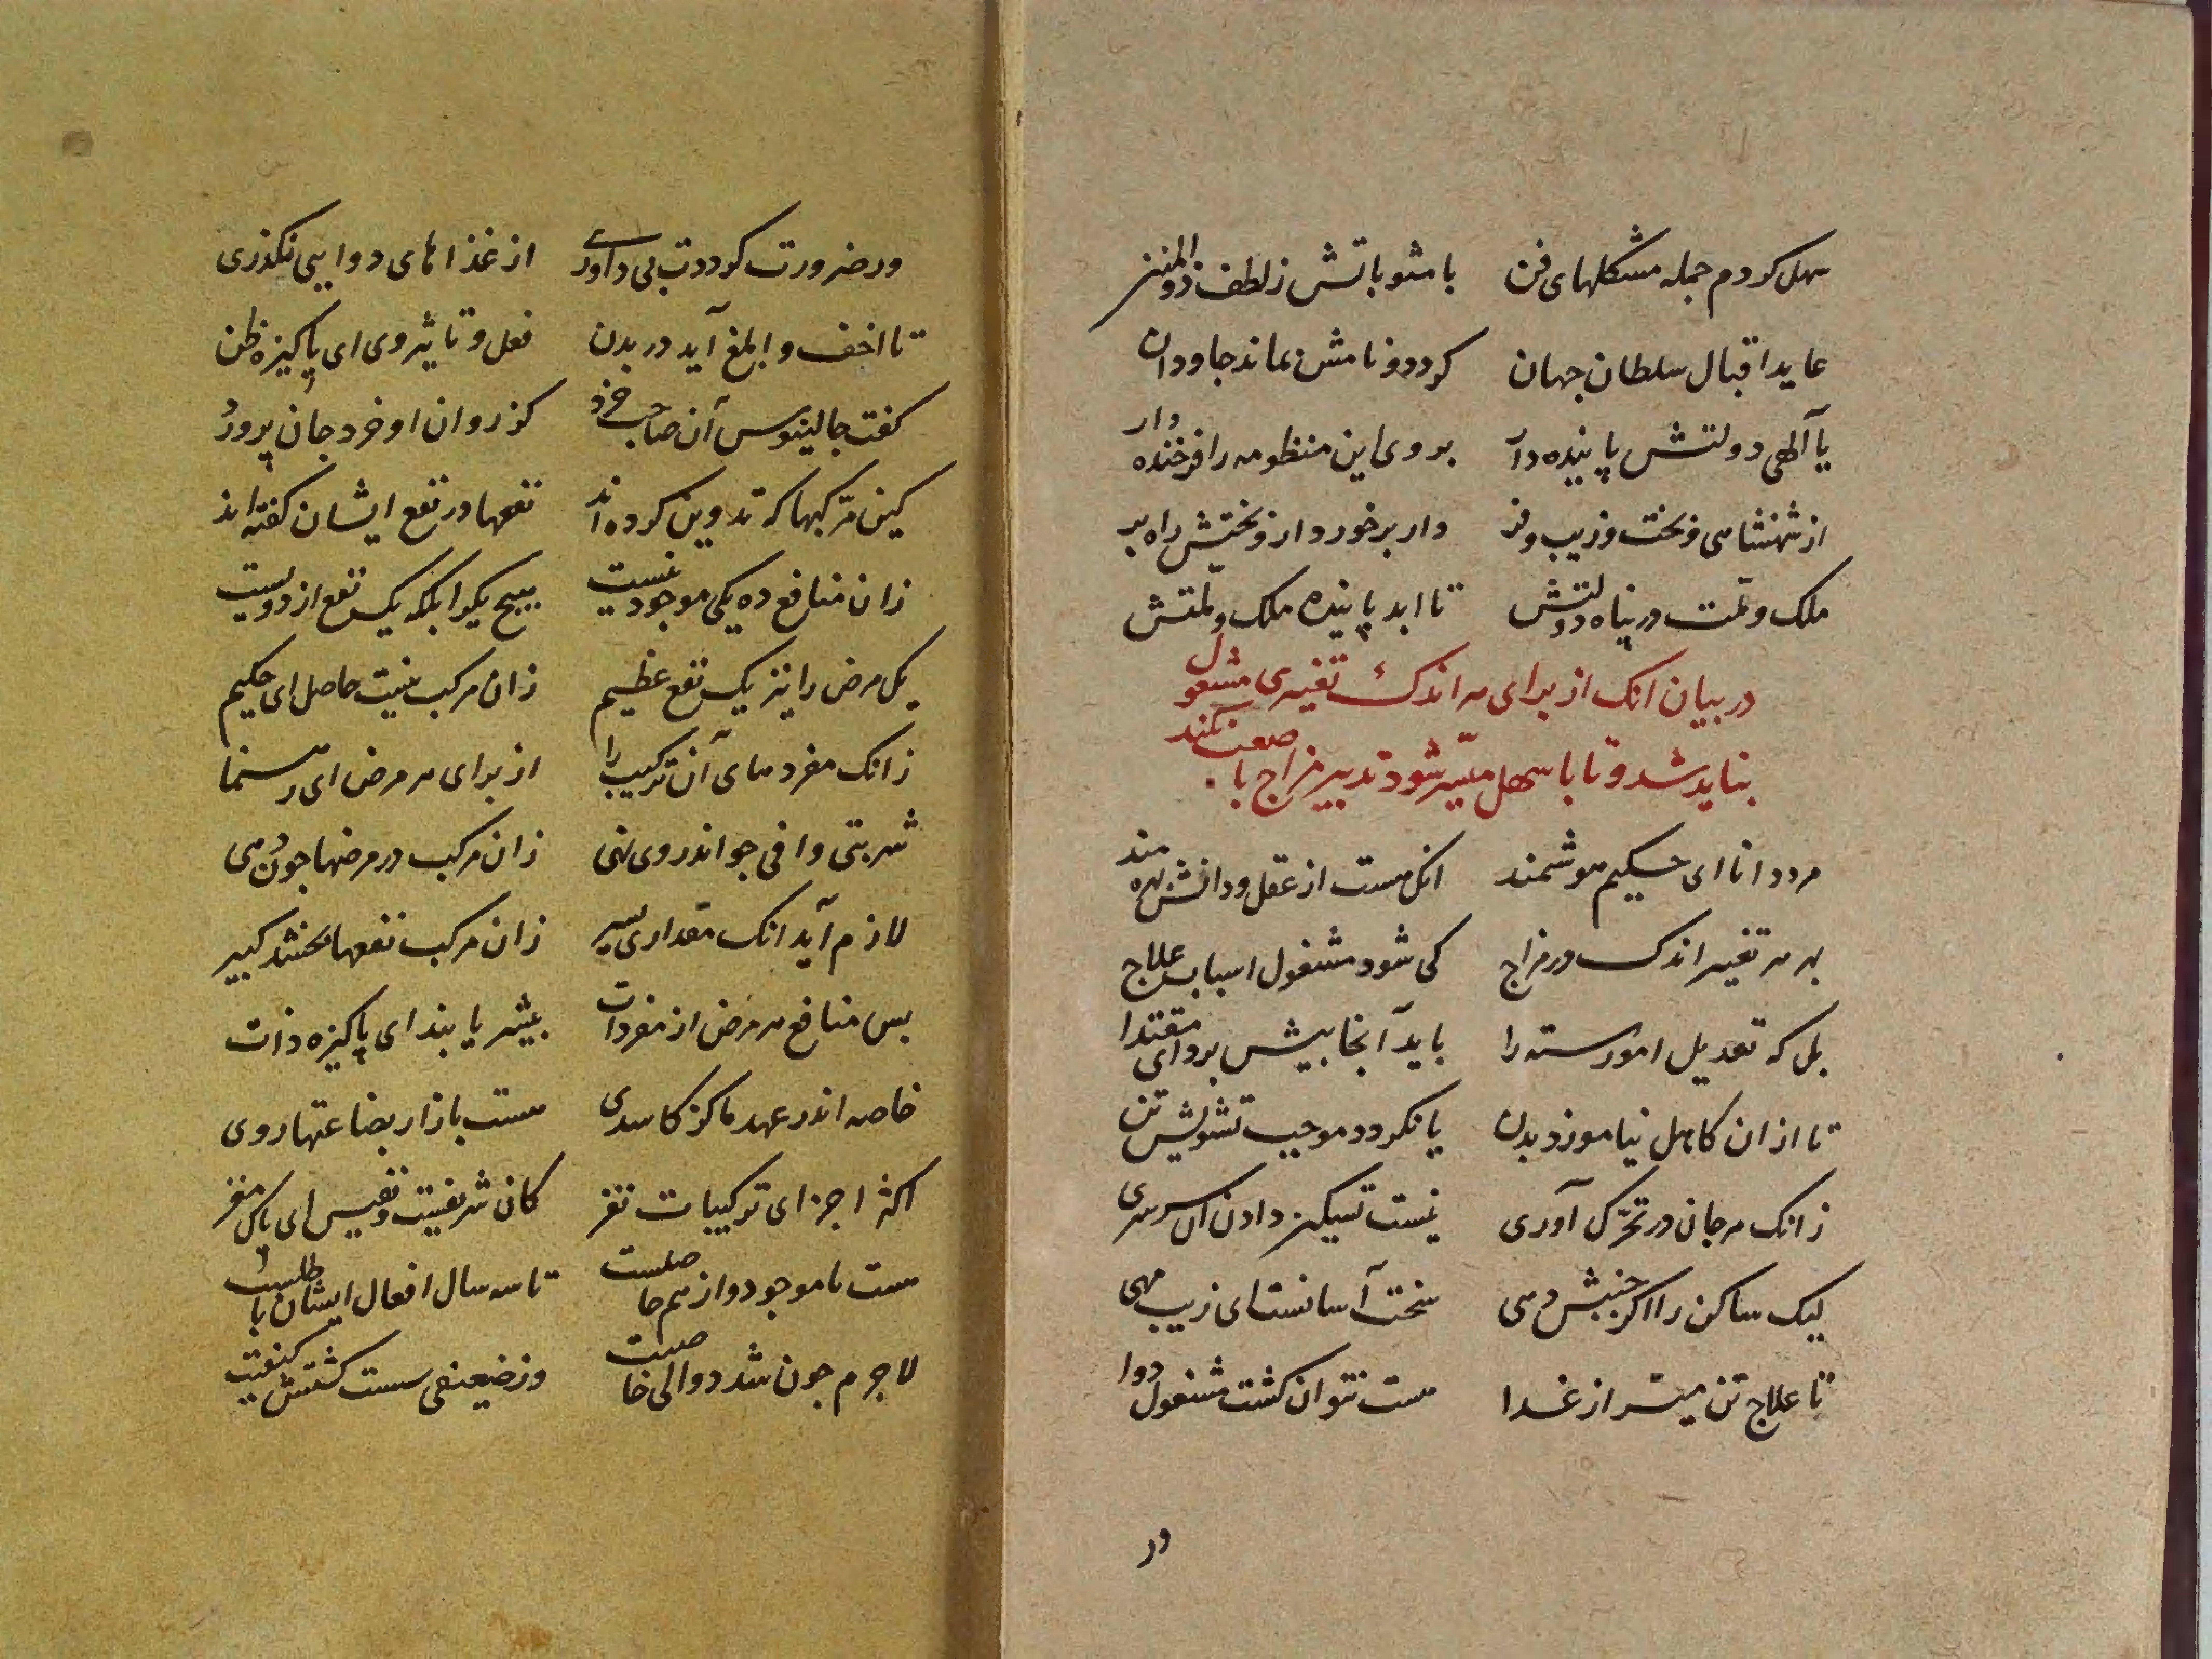 سهل کردم جمله مشکلهای فن با مثوباتش ز لطف ذو المنن
عاید اقبال سلطان جهان کردد و نامش بماند جاودان
یا آلهی دولتش پاینده دار بر وی این منظومه را فرخنده دار
از شهنشاهی و بخت و زیب و فر دار برخوردار و بختش راه بر
ملک و ملت در پناه دولتش تا ابد پاینده ملک و ملتش
در بیان انک از برای هر اندک تغییری مشغول
نباید شد و تا با سهل میسّر شود تدبیر مزاج با صعب نکنند
مرد دانا ای حکیم هوشمند انک هست از عقل و دانش بهره مند
بهر هر تغییر اندک در مزاج کی شود مشغول اسباب علاج
بل که تعدیل امور سته را باید آنجا پیش برد ای مقتدا
تا از ان کاهل نیاموزد بدن یا نکردد موجب تشویش تن
زانک هر جان در تحرّک آوری نیست تسکین دادن آن سرسری
لیک ساکن را اکر جنبش دهی سخت آسانست ای زیب مهی
تا علاج تن میسّر از غدا هست نتوان کشت مشغول دوا
در
ور ضرورت کرددت بی داوری از غذاهای دوایی نکذری
تا اخف و ابلغ آید در بدن فعل و تاثیر وی ای پاکیزه ظن
کفت جالینوس آن صاحب خرد کز روان او خرد جان پرورد
کین مرکبها که تدوین کرده اند نفعها در نفع ایشان کفته اند
زان منافع ده یکی موجود نیست هیچ یکرا بلکه یک نفع از دویست
یک مرض را نیز یک نفع عظیم زان مرکب نیست حاصل ای حکیم
زانک مفردهای آن ترکیب را از برای هر مرض ای رهنما
شربتی وافی جو اندر وی نهی زان مرکب در مرضها جون دهی
لازم آید انک مقداری یسیر زان مرکب نفعها بخشد کبیر
بس منافع هر مرض از مفردات بیشتر یابند ای پاکیزه ذات
خاصه اندر عهد ما کز کاسدی هست بازار بضاعتها ردی
اکثر اجزای ترکیبات نغز کان شریفیت و نفیس ای پاک مغز
هست ناموجود و از هم حاصلست تا سه سال افعال ایشان باطلست
لاجرم جون شد دوا لی خاصیت وز ضعیفی سست کشتش کیفیت